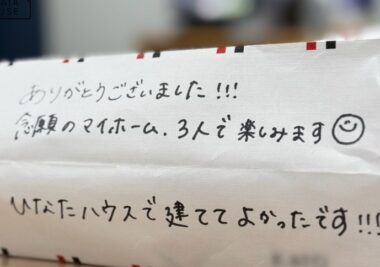 ありがとうございました!!!
念願のマイホーム、3人で楽しみます
ひなたハウスで建ててよかったです!!!